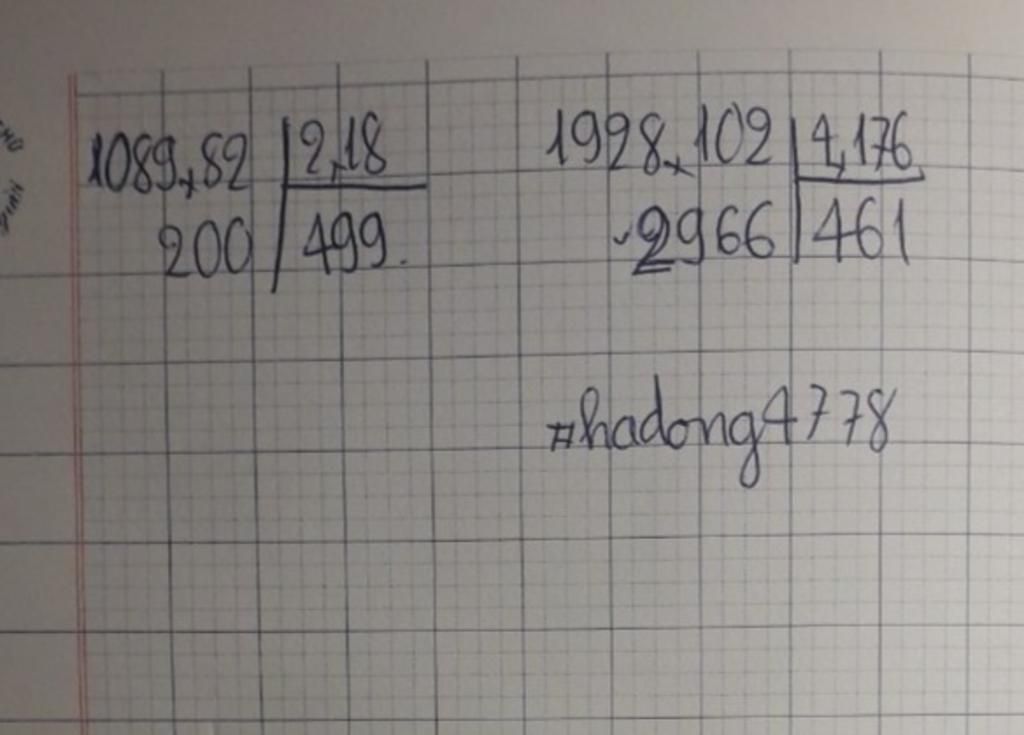 1089,82 2,18
200 499.
1928,102 4,176
2966 461
#hadong4778